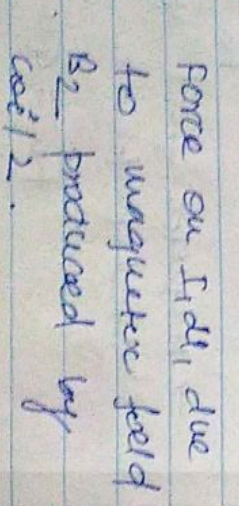 Force on I₁dl₁ due
to magnetic field
B₂ produced by
coil 2.